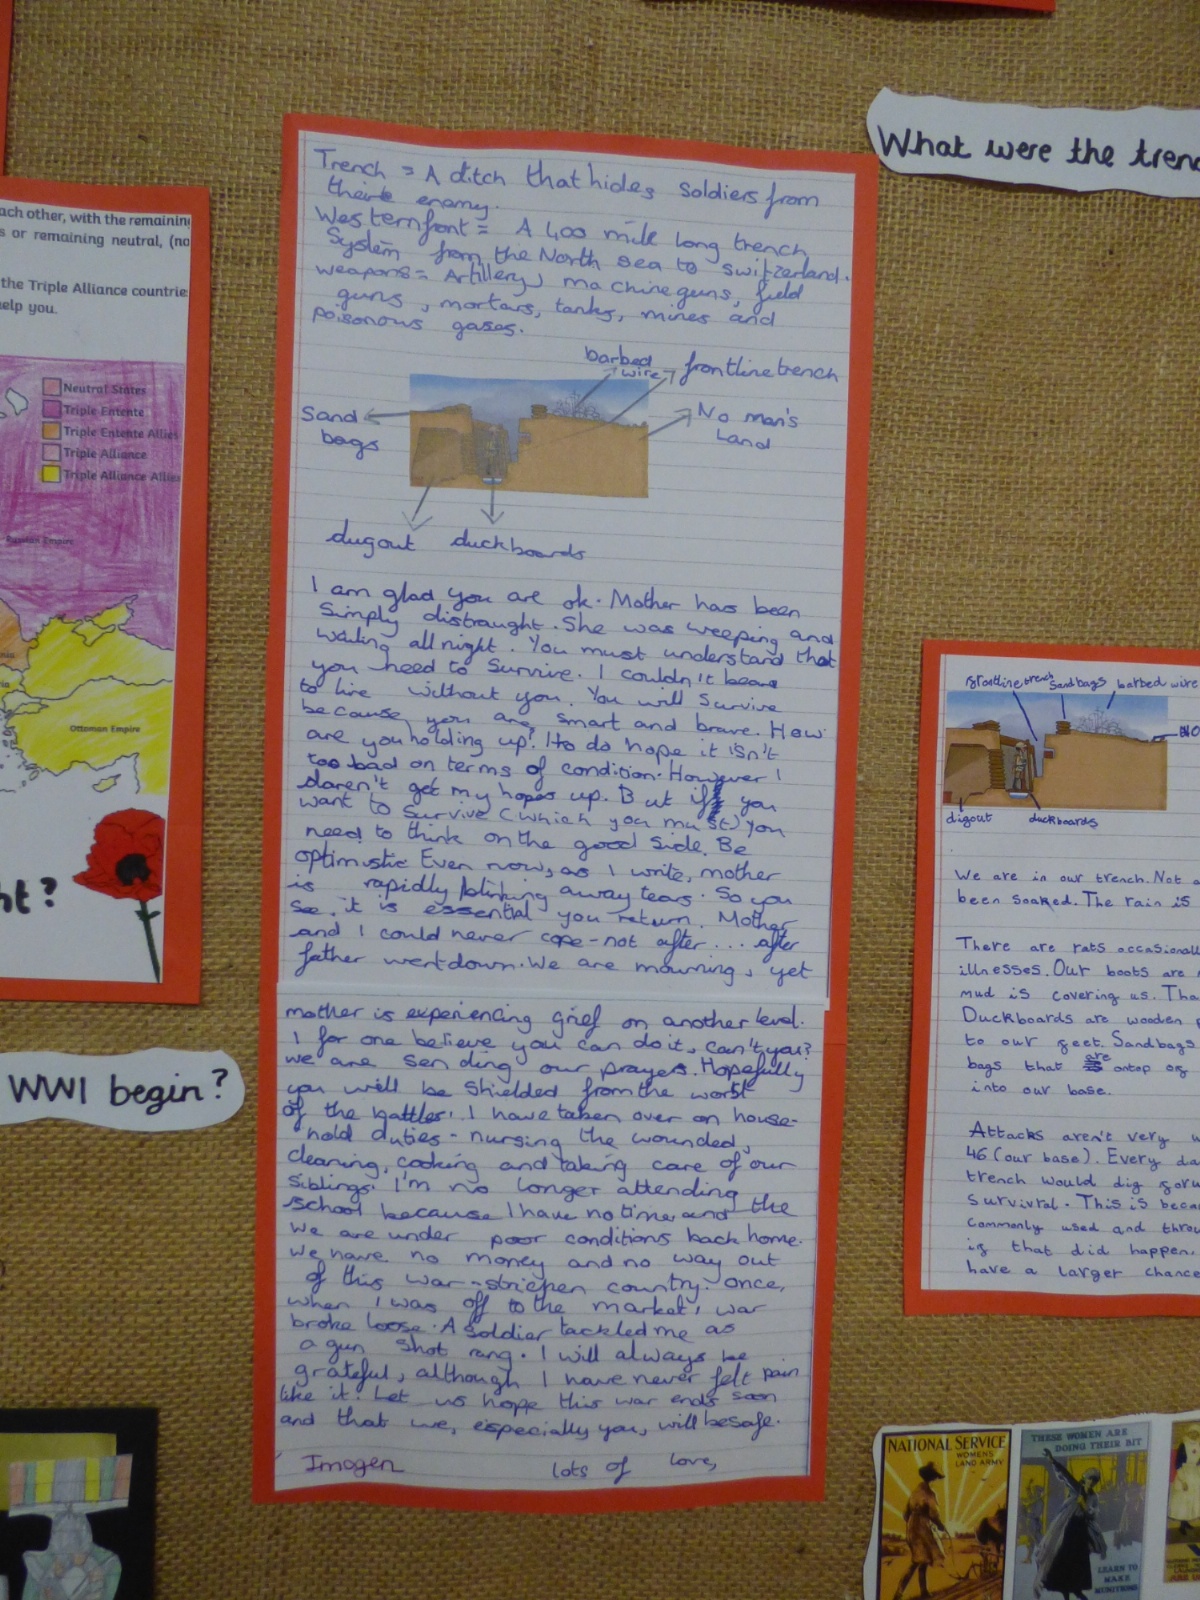 What were the
Trench = A ditch that hides soldiers from
their enemy.
Westernfront = A 400 mile long trench
System from the North sea to switzerland.
weapons = Artillery, machineguns, field
guns, mortars, tanks, mines and
poisonous gases.
barbed
wire
frontline trench
Sand
bags
No man's
Land
dugout
duckboards
I am glad you are ok. Mother has been
Simply distraught. She was weeping and
wailing all night. You must understand that
you need to Survive. I couldn't
to live without you. You will Survive
because you are smart and brave. How
are you holding up? I do hope it isn't
too bad on terms of condition. However I
daren't get my hopes up. But if you
want to Survive (which you must) you
need to think on the good side. Be
optimistic Even now, as I write, mother
is rapidly blinking away tears. So you
see, it is essential you return. Mother
and I could never cope - not after ... after
father went down. We are mourning, yet
mother is experiencing grief on another level.
I for one believe you can do it, can't you?
We are sending our prayers. Hopefully
you will be Shielded from the worst
of the battles! I have taken over on house-
hold duties - nursing the wounded,
cleaning, cooking and taking care of our
siblings. I'm no longer attending
school because I have no time and the
We are under poor conditions back home.
We have no money and no way out
of this war - country. Once,
when I was off to the market, war
broke loose. A Soldier tackled me as
a gun shot rang. I will always be
grateful, although I have never felt pain
like it. Let us hope this war ends soon
and that we, especially you, will be safe.
Imogen
Lots of love,
each other, with the remaining
s or remaining neutral, (no
the Triple Alliance countrie
elp you.
Neutral States
Triple Entente
Triple Entente Allies
Triple Alliance
Triple Alliance Allies
Russian Empire
Ottoman Empire
ht?
WWI begin?
frontline trench
Sandbags
barbed wire
NO
digout
duckboards
We are in our trench. Not
been soaked. The rain is
There are rats occasionall
illnesses. Our boots are
mud is covering us. Tha
Duckboards are wooden
to our feet. Sandbags
bags that are ontop of
into our base.
Attacks aren't very
46 (our base). Every da
trench would dig for
survivral. This is beca
commonly used and throu
if that did happen.
have a larger chance
NATIONAL SERVICE
WOMEN'S
LAND ARMY
THESE WOMEN ARE
DOING THEIR BIT
LEARN TO
MAKE
MUNITIONS